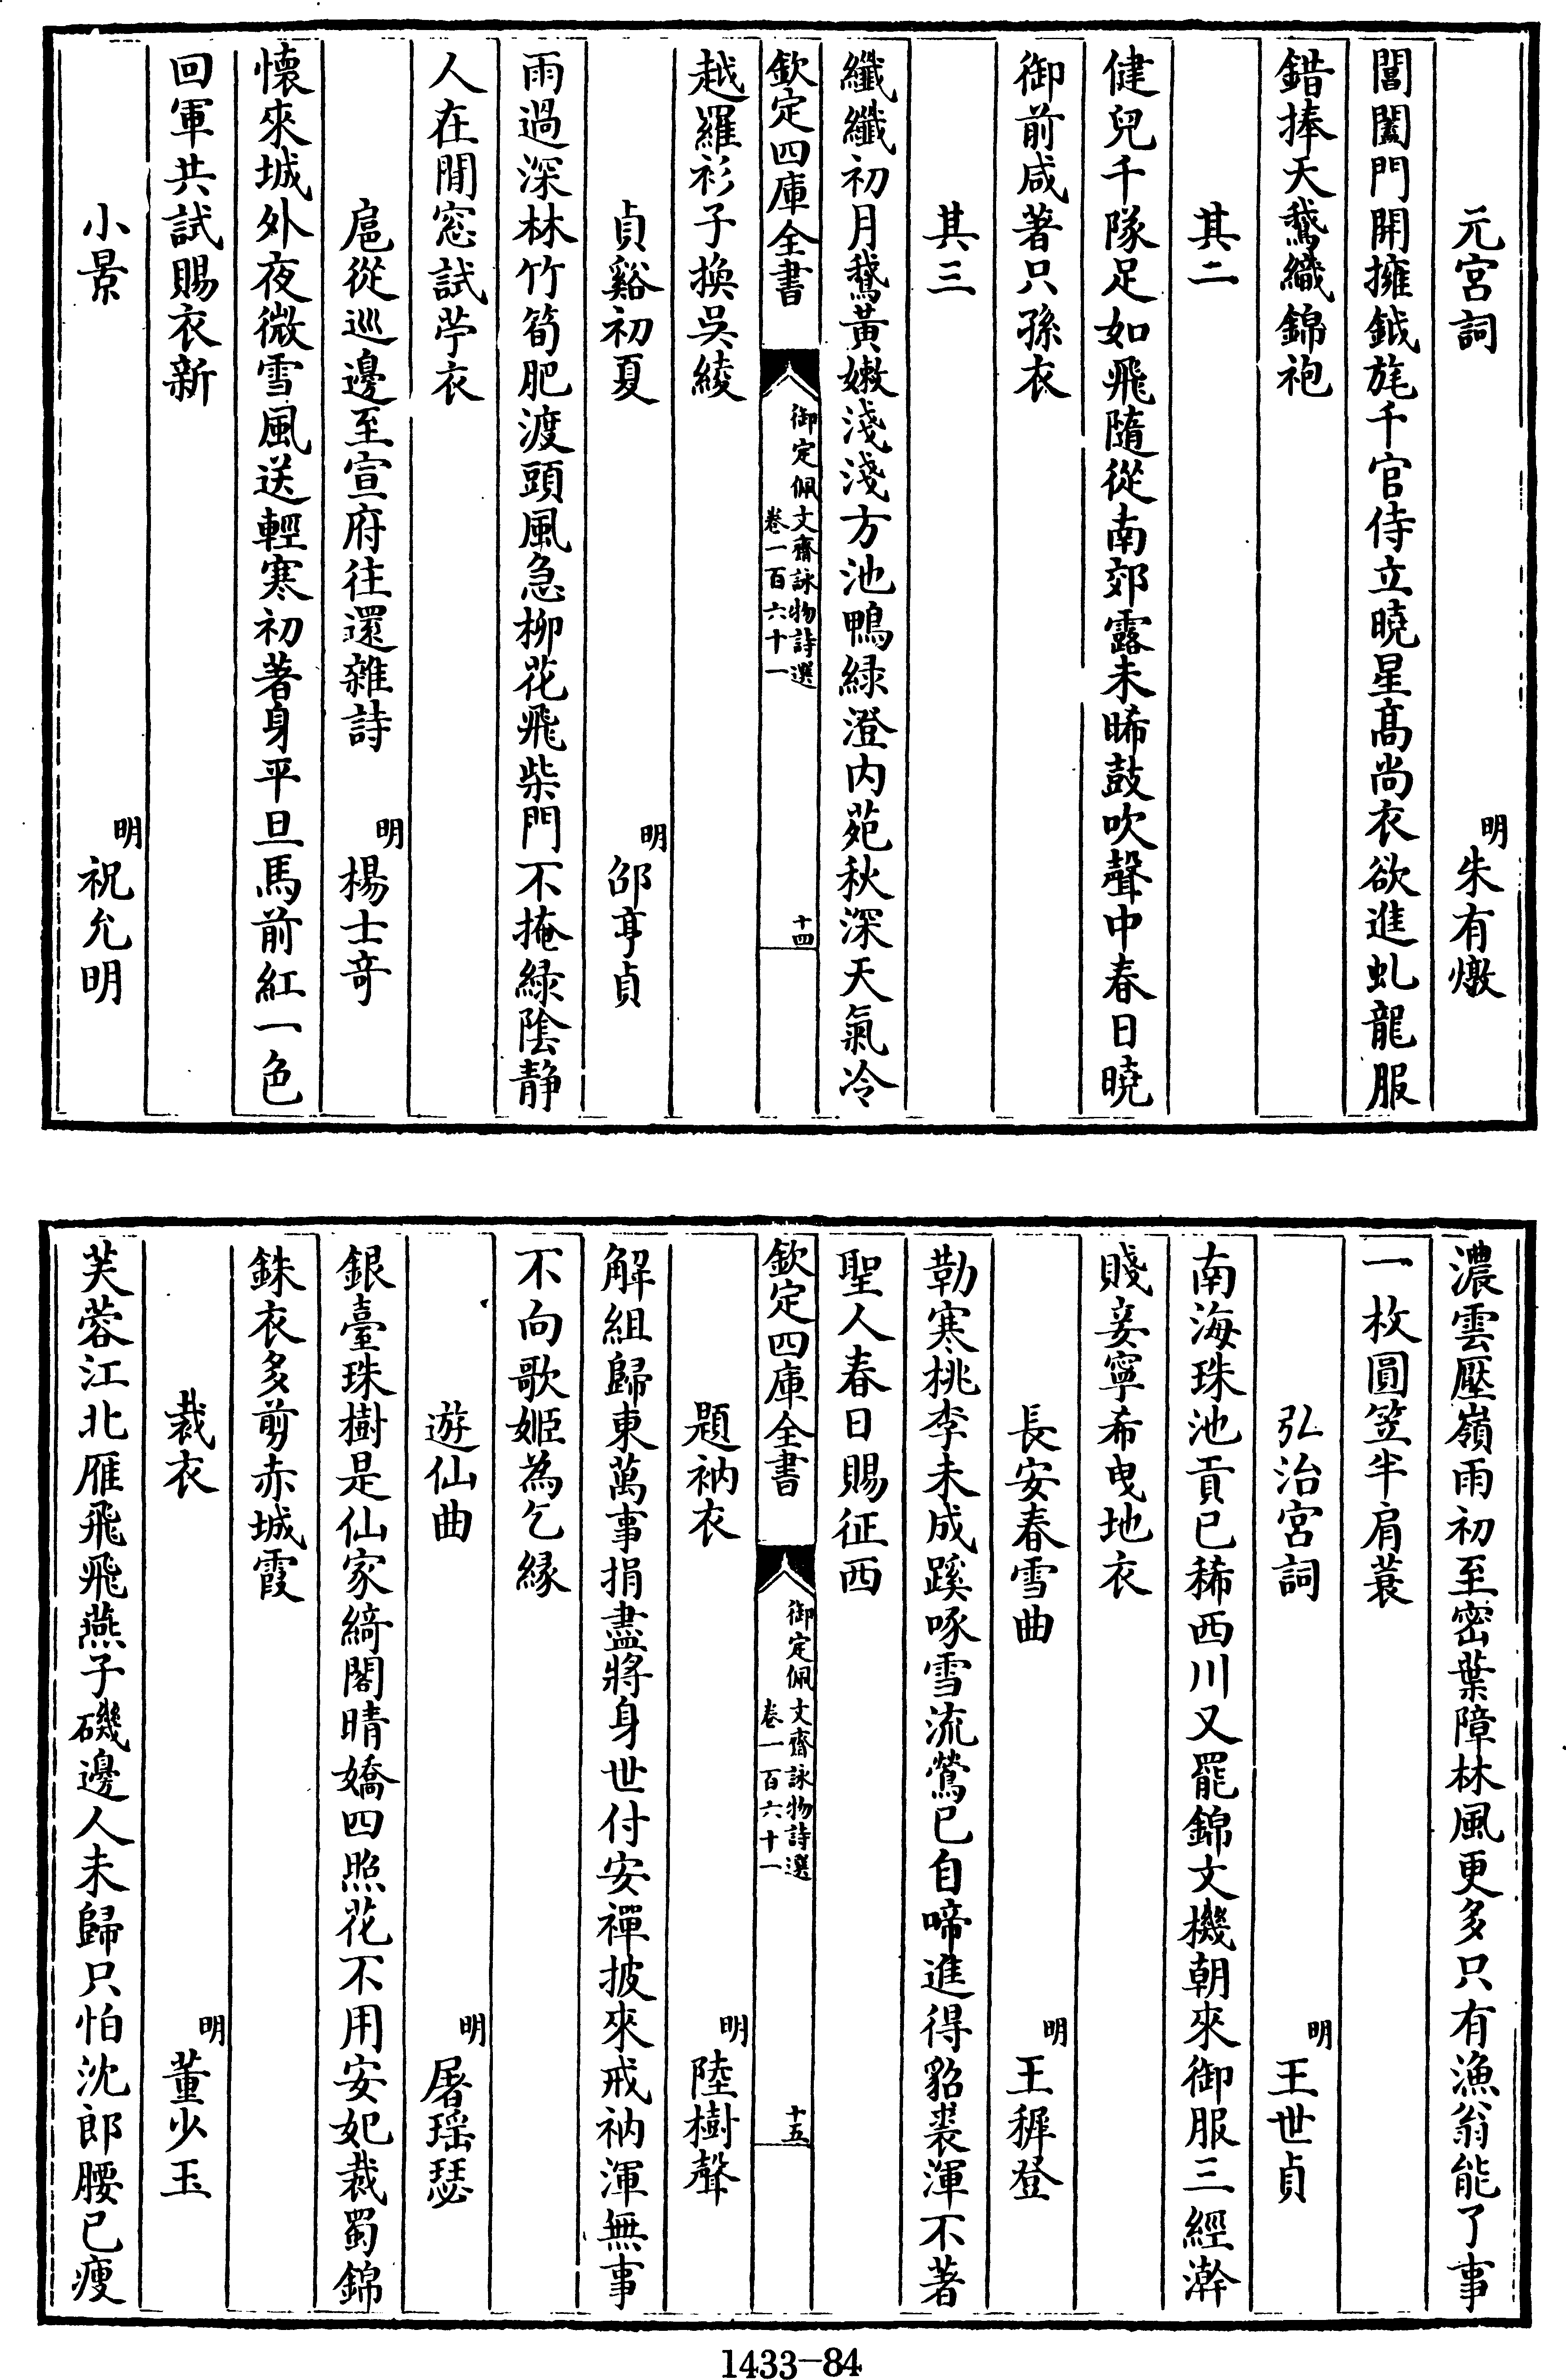 元宮詞　明朱有燉
閶闔門開擁鉞旄千官侍立曉星高尚衣欲進虬龍服
錯捧天鵝織錦袍
其二
健兒千隊足如飛隨從南郊露未晞鼓吹聲中春日曉
御前咸著只孫衣
其三
纖纖初月鵞黃嫩淺淺方池鴨緑澄内苑秋深天氣冷
欽定四庫全書　御定佩文齋詠物詩選　卷一百六十一　十四
越羅衫子換吳綾
貞谿初夏　明邵亨貞
雨過深林竹筍肥渡頭風急柳花飛柴門不掩緑陰静
人在閒窓試苧衣
扈從巡邊至宣府往還雜詩　明楊士竒
懷來城外夜微雪風送輕寒初著身平旦馬前紅一色
回軍共試賜衣新
小景　明祝允明
濃雲壓嶺雨初至密葉障林風更多只有漁翁能了事
一枚圓笠半肩蓑
弘治宮詞　明王世貞
南海珠池貢已稀西川又罷錦文機朝來御服三經澣
賤妾寧希曳地衣
長安春雪曲　明王穉登
勒寒桃李未成蹊啄雪流鶯已自啼進得貂裘渾不著
聖人春日賜征西
欽定四庫全書　御定佩文齋詠物詩選　卷一百六十一　十五
題衲衣　明陸樹聲
解組歸東萬事捐盡將身世付安禪披來戒衲渾無事
不向歌姬為乞緣
遊仙曲　明屠瑶瑟
銀臺珠樹是仙家綺閣晴嬌四照花不用安妃裁蜀錦
銖衣多剪赤城霞
裁衣　明董少玉
芙蓉江北雁飛飛燕子磯邊人未歸只怕沈郎腰已瘦
1433—84